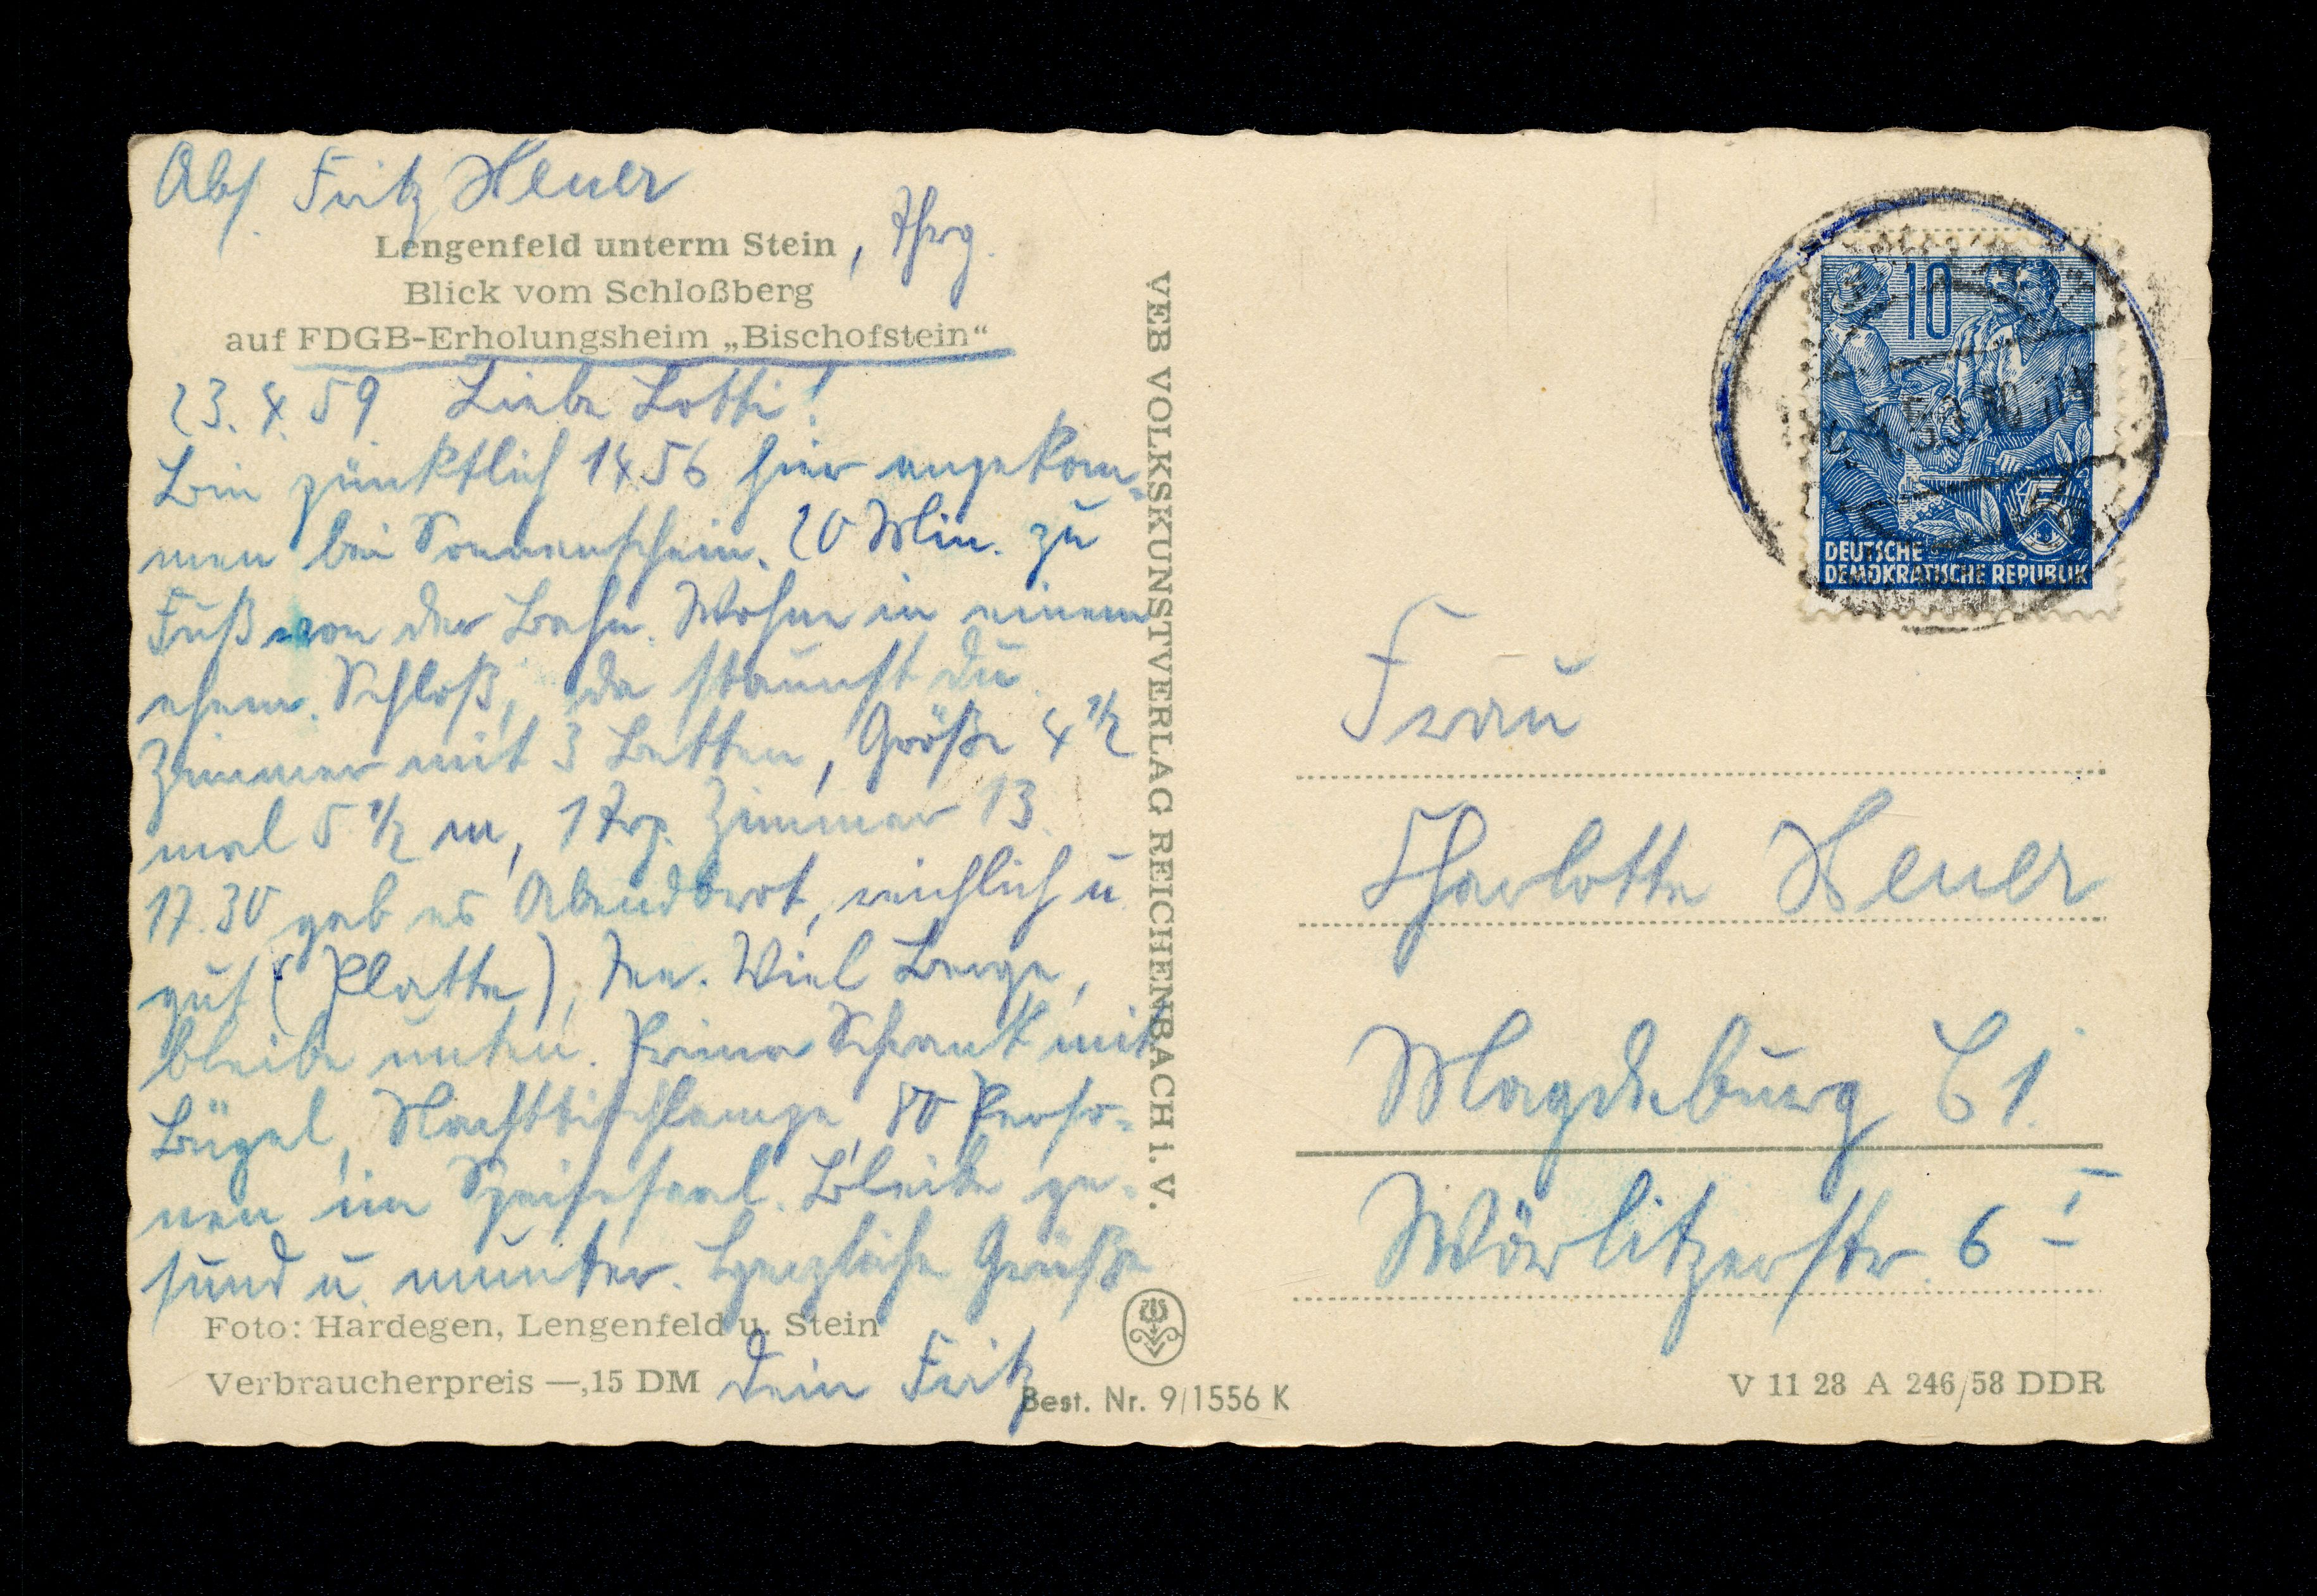 Abs. Fritz Heuer
Lengenfeld unterm Stein, Thrg.
Blick vom Schloßberg
auf FDGB-Erholungsheim „Bischofstein“
23.4.59. Liebe Lotti!
Bin pünktlich 1456 hier angekom-
men bei Sonnenschein. 20 Min. zu
Fuß von der Bahn. Wohne in einem
ehem. Schloß, da staunst du.
Zimmer mit 3 Betten, Größe 4 1/2
mal 5 1/2 m, 1 Trp. Zimmer 13.
17.30 gab es Abendbrot, reichlich u.
gut (Platte), Tee. Viel Berge,
bleibe unten. Prima Schrank mit
Bügel, Nachttischlampe, 80 Perso-
nen im Speisesaal. Bleibe ge-
sund u. munter. Herzliche Grüße
Foto: Hardegen, Lengenfeld u. Stein
Verbraucherpreis —,15 DM
Dein Fritz
Best. Nr. 9/1556 K
VEB VOLKSKUNSTVERLAG REICHENBACH i. V.
10
DEUTSCHE
DEMOKRATISCHE REPUBLIK
Frau
Charlotte Heuer
Magdeburg C1.
Wörlitzerstr. 6 I
V 11 28 A 246/58 DDR